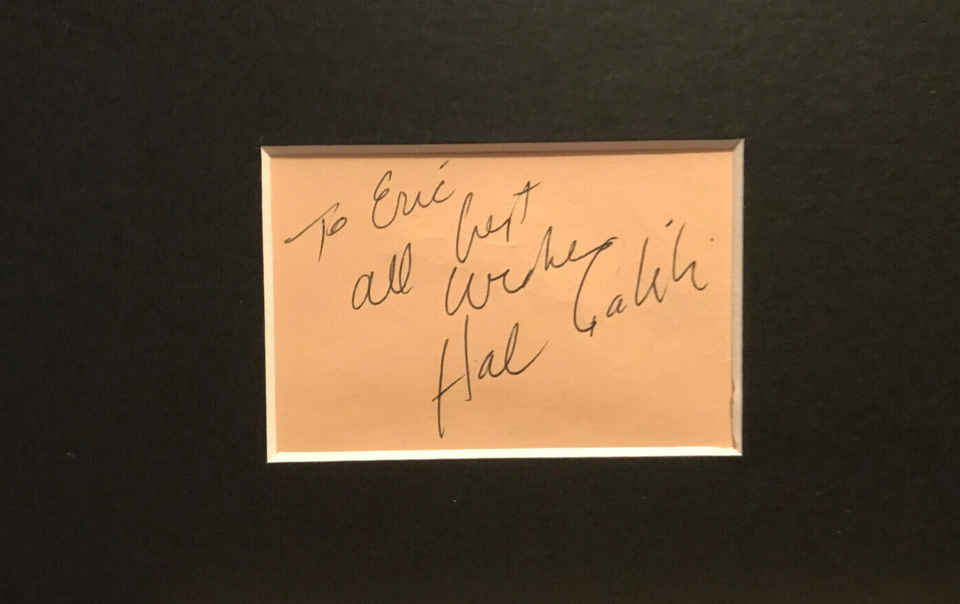 To Eric
all best
wishes
Hal Galili